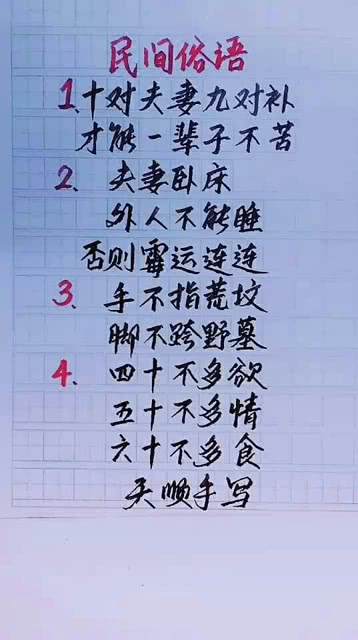 民间俗语
1、十对夫妻九对补
才能一辈子不苦
2、夫妻卧床
外人不能睡
否则霉运连连
3、手不指荒坟
脚不跨野墓
4、四十不多欲
五十不多情
六十不多食
天顺手写